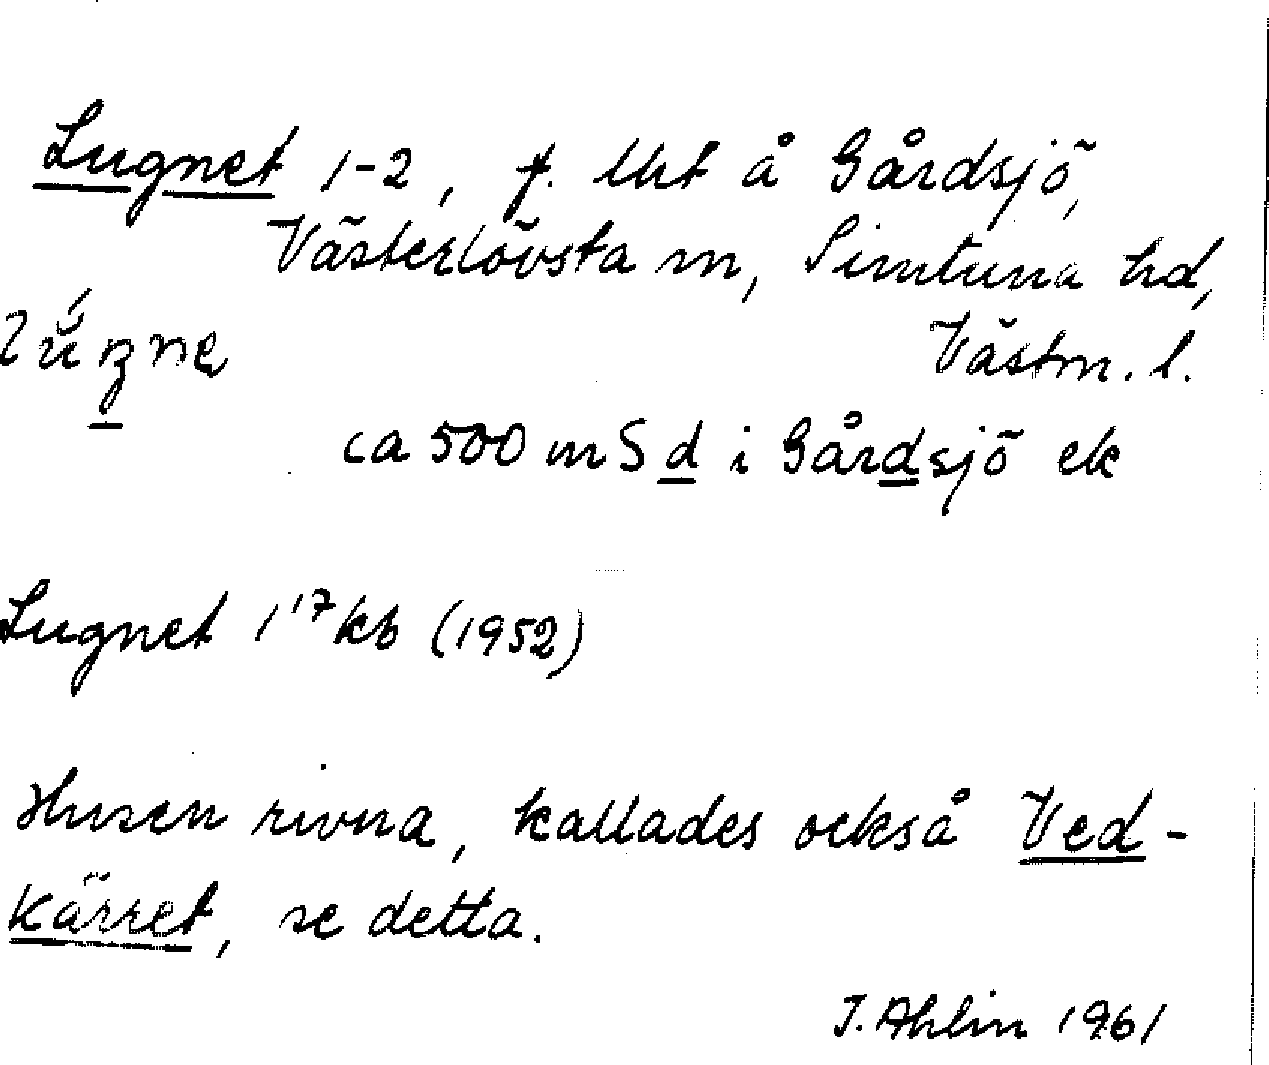 Lugnet 1-2, f. lht å Gårdsjö,
Västerlövsta sn, Simtuna hd,
Västm. l.
ca 500 m S d i Gårdsjö ek
Lugnet 1 '7 kb (1952)
Husen rivna, kallades också Ved-
kärret, se detta.
I. Ahlin 1961